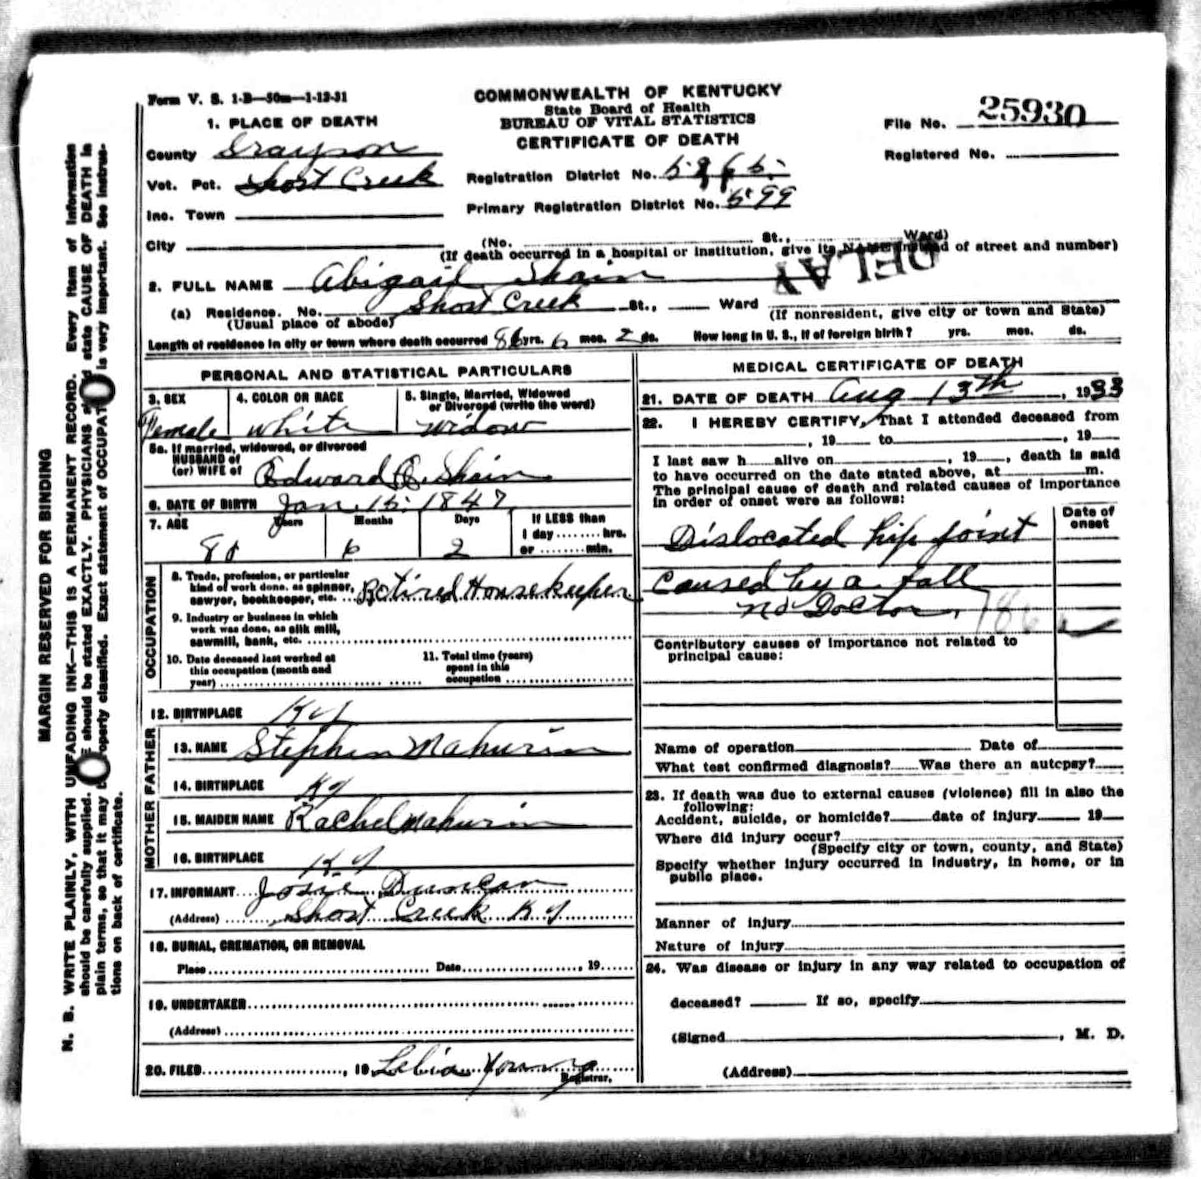 Form V. S. 1-B—50m—1-12-31
COMMONWEALTH OF KENTUCKY
State Board of Health
BUREAU OF VITAL STATISTICS
CERTIFICATE OF DEATH
File No. 25930
Registered No.
1. PLACE OF DEATH
County Grayson
Vot. Pct. Short Creek
Inc. Town
City
Registration District No.
Primary Registration District No. 599
(No. St., Ward)
(If death occurred in a hospital or institution, give its NAME instead of street and number)
DELAY
2. FULL NAME Abigail Shain
(a) Residence. No. Short Creek St., Ward
(Usual place of abode)
(If nonresident, give city or town and State)
Length of residence in city or town where death occurred 86 yrs. 6 mos. 2 ds. How long in U. S., if of foreign birth? yrs. mos. ds.
PERSONAL AND STATISTICAL PARTICULARS
3. SEX
Female
4. COLOR OR RACE
White
5. Single, Married, Widowed
or Divorced (write the word)
Widow
5a. If married, widowed, or divorced
HUSBAND of
(or) WIFE of Edward Shain
6. DATE OF BIRTH Jan 15 1847
7. AGE Years Months Days If LESS than
1 day hrs.
or min.
6 2
OCCUPATION
8. Trade, profession, or particular
kind of work done, as spinner,
sawyer, bookkeeper, etc. Retired Housekeeper
9. Industry or business in which
work was done, as silk mill,
sawmill, bank, etc.
10. Date deceased last worked at
this occupation (month and
year)
11. Total time (years)
spent in this
occupation
12. BIRTHPLACE Ky
FATHER
13. NAME Stephen Mahurin
14. BIRTHPLACE Ky
MOTHER
15. MAIDEN NAME Rachel Mahurin
16. BIRTHPLACE Ky
17. INFORMANT Josie Duncan
(Address) Short Creek Ky
18. BURIAL, CREMATION, OR REMOVAL
Place Date , 19
19. UNDERTAKER
(Address)
20. FILED , 19 Lelia Young
Registrar.
MEDICAL CERTIFICATE OF DEATH
21. DATE OF DEATH Aug 13th , 1933
22. I HEREBY CERTIFY, That I attended deceased from
, 19 to , 19
I last saw h alive on , 19 , death is said
to have occurred on the date stated above, at m.
The principal cause of death and related causes of importance
in order of onset were as follows:
Date of
onset
Dislocated hip joint
caused by a fall
no Doctor
Contributory causes of importance not related to
principal cause:
Name of operation Date of
What test confirmed diagnosis? Was there an autopsy?
23. If death was due to external causes (violence) fill in also the
following:
Accident, suicide, or homicide? date of injury 19
Where did injury occur?
(Specify city or town, county, and State)
Specify whether injury occurred in industry, in home, or in
public place.
Manner of injury
Nature of injury
24. Was disease or injury in any way related to occupation of
deceased? If so, specify
(Signed , M. D.
(Address)
MARGIN RESERVED FOR BINDING
N. B. WRITE PLAINLY, WITH UNFADING INK—THIS IS A PERMANENT RECORD. Every item of information
should be carefully supplied. AGE should be stated EXACTLY. PHYSICIANS should state CAUSE OF DEATH in
plain terms, so that it may be properly classified. Exact statement of OCCUPATION is very important. See instruc-
tions on back of certificate.